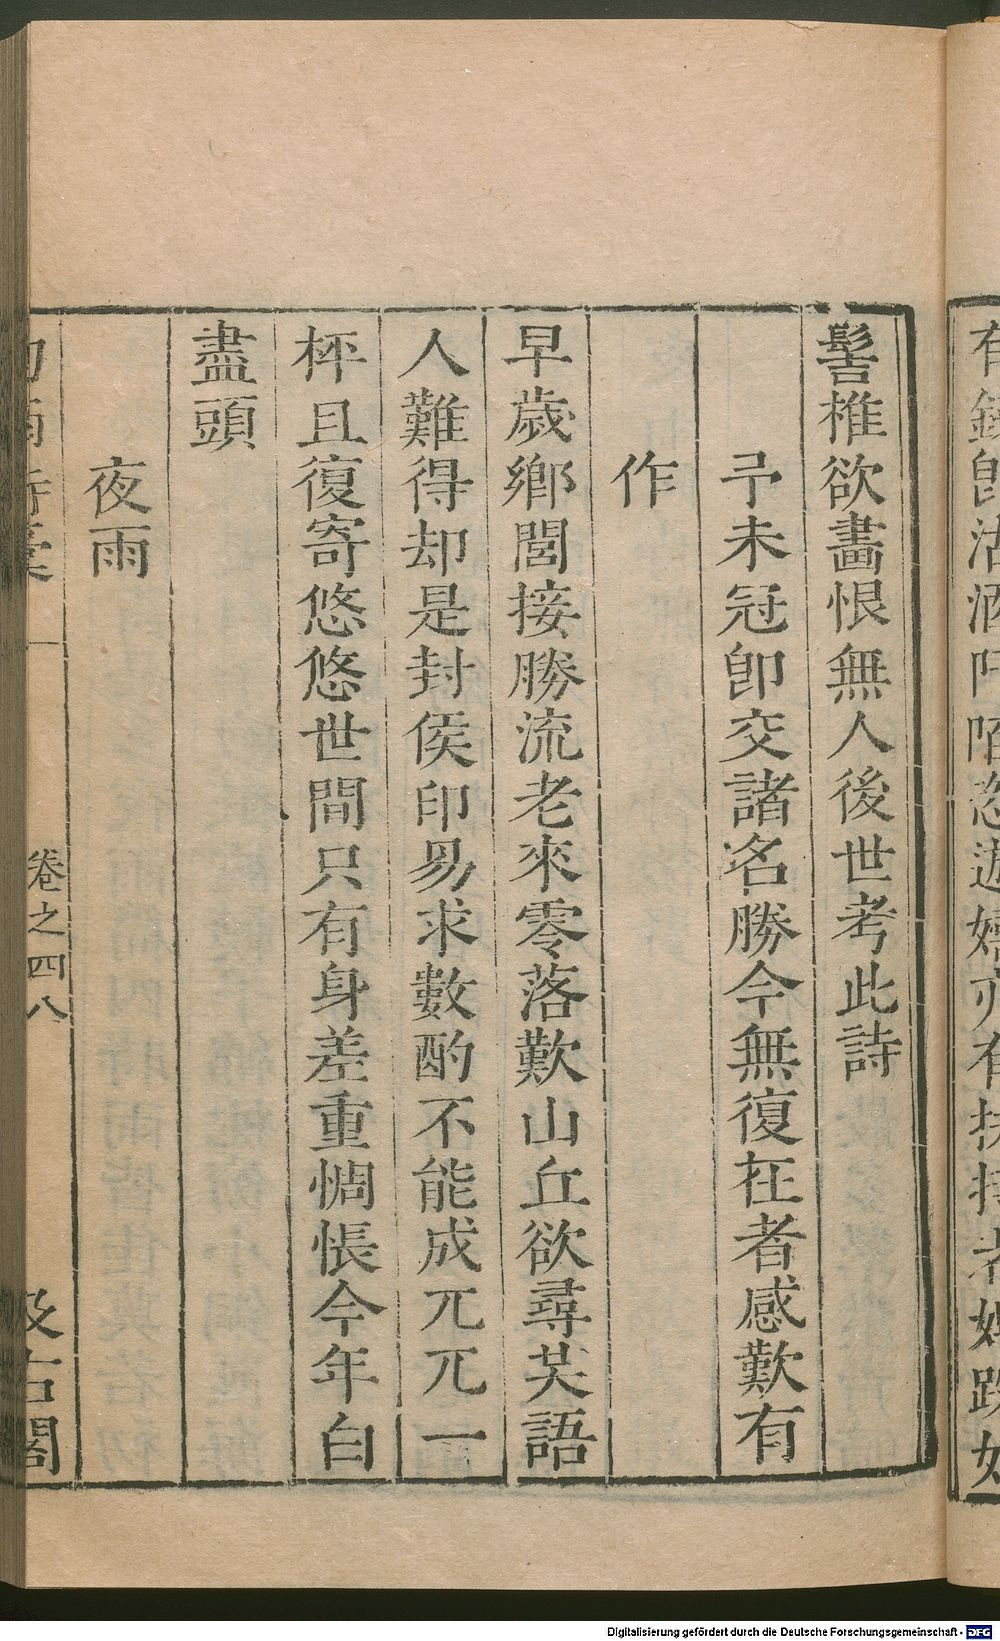 有錢卽沽酒阡陌恣遊嬉亦有扶持者
髻椎欲畫恨無人後世考此詩
予未冠卽交諸名勝今無復在者感歎有
作
早歲鄉閭接勝流老來零落歎山丘欲尋笑語
人難得却是封侯印易求數酌不能成兀兀一
枰且復寄悠悠世間只有身差重惆悵今年白
盡頭
夜雨
卷之四八
汲古閣
Digitalisierung gefördert durch die Deutsche Forschungsgemeinschaft - DFG